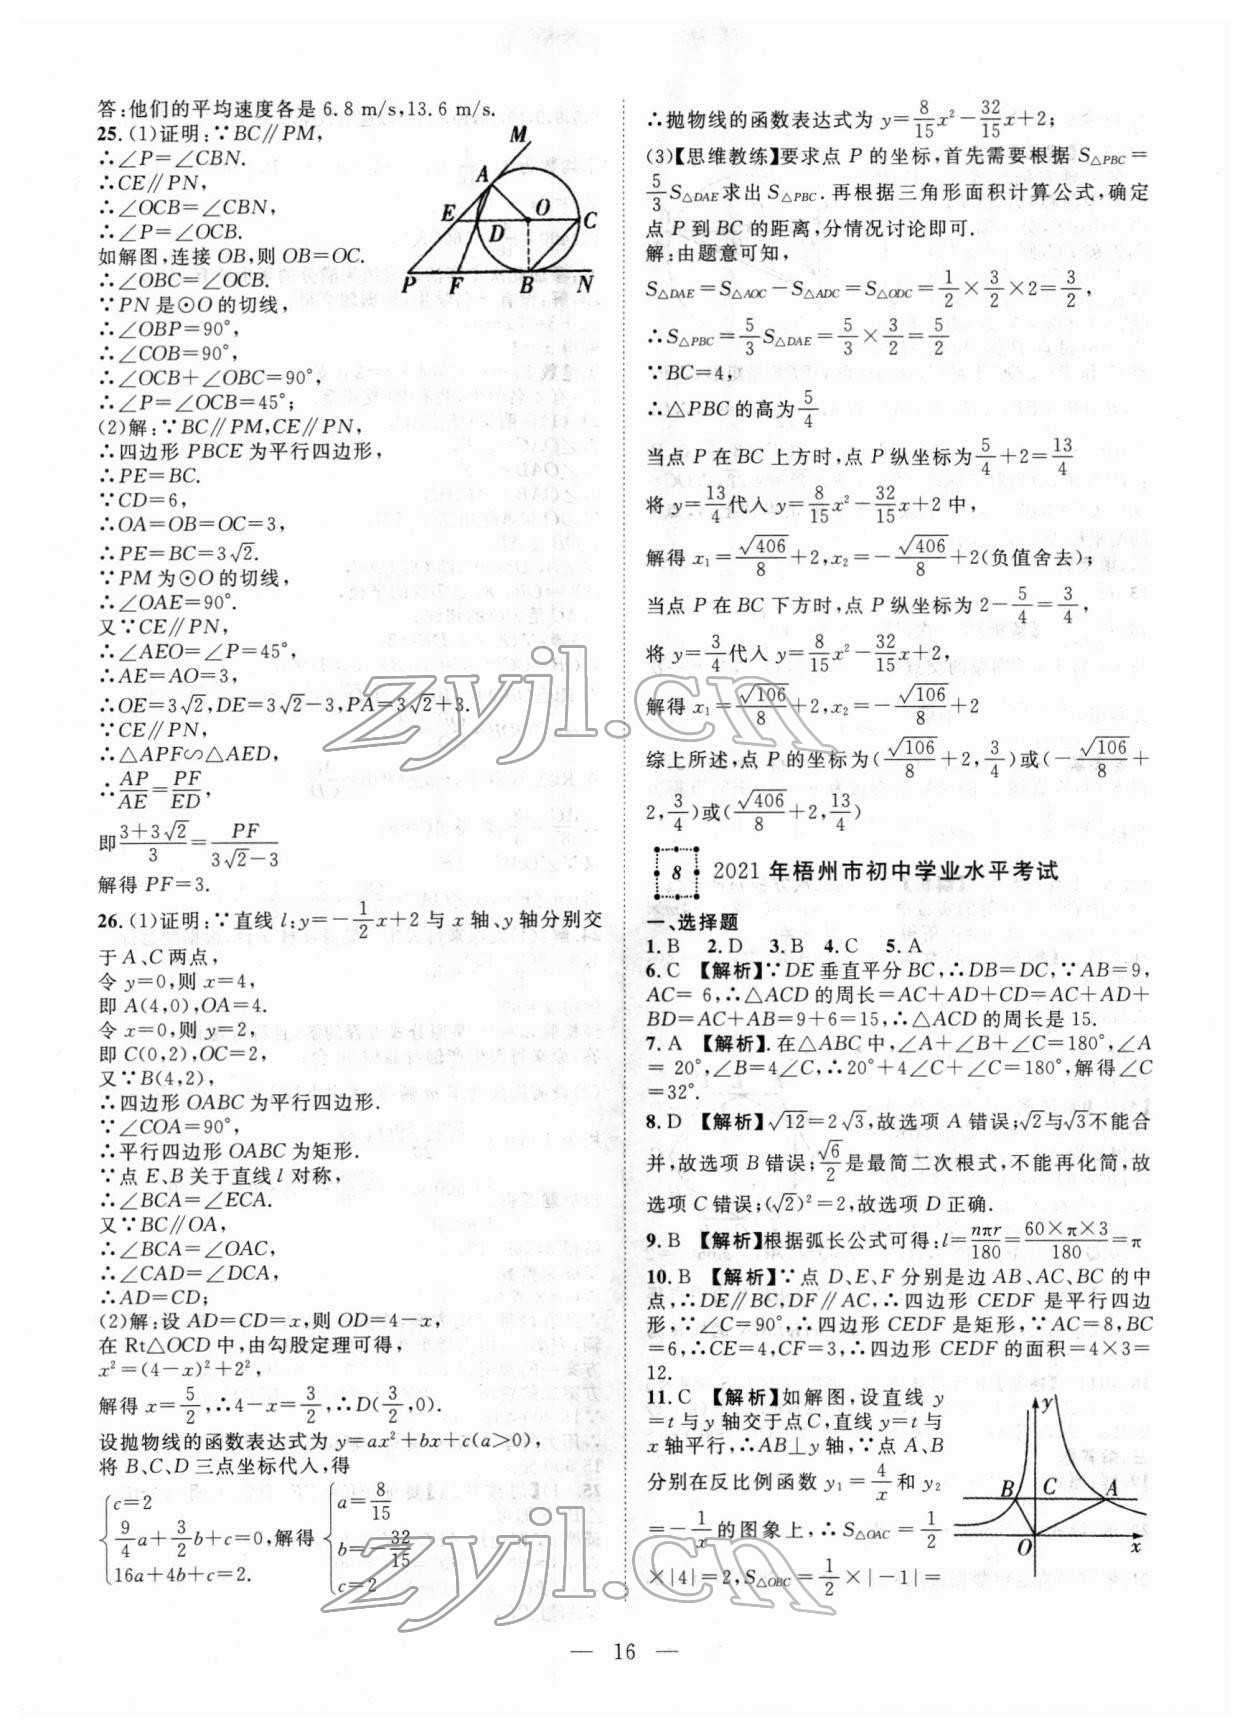 答:他们的平均速度各是 6.8 m/s,13.6 m/s.
25.(1)证明:∵BC∥PM,
∴∠P=∠CBN.
∴CE∥PN,
∴∠OCB=∠CBN,
∴∠P=∠OCB.
如解图,连接 OB,则 OB=OC.
∴∠OBC=∠OCB.
∵PN 是⊙O 的切线,
∴∠OBP=90°,
∴∠COB=90°,
∴∠OCB+∠OBC=90°,
∴∠P=∠OCB=45°;
(2)解:∵BC∥PM,CE∥PN,
∴四边形 PBCE 为平行四边形,
∴PE=BC.
∵CD=6,
∴OA=OB=OC=3,
∴PE=BC=3√2.
∵PM 为⊙O 的切线,
∴∠OAE=90°.
又∵CE∥PN,
∴∠AEO=∠P=45°,
∴AE=AO=3,
∴OE=3√2,DE=3√2-3,PA=3√2+3.
∵CE∥PN,
∴△APF∽△AED,
∴AP/AE=PF/ED,
即(3+3√2)/3=PF/(3√2-3)
解得 PF=3.
26.(1)证明:∵直线 l:y=-1/2x+2 与 x 轴、y 轴分别交
于 A、C 两点,
令 y=0,则 x=4,
即 A(4,0),OA=4.
令 x=0,则 y=2,
即 C(0,2),OC=2,
又∵B(4,2),
∴四边形 OABC 为平行四边形.
∵∠COA=90°,
∴平行四边形 OABC 为矩形.
∵点 E、B 关于直线 l 对称,
∴∠BCA=∠ECA.
又∵BC∥OA,
∴∠BCA=∠OAC,
∴∠CAD=∠DCA,
∴AD=CD;
(2)解:设 AD=CD=x,则 OD=4-x,
在 Rt△OCD 中,由勾股定理可得,
x²=(4-x)²+2²,
解得 x=5/2,∴4-x=3/2,∴D(3/2,0).
设抛物线的函数表达式为 y=ax²+bx+c(a>0),
将 B、C、D 三点坐标代入,得
{c=2
9/4a+3/2b+c=0,
16a+4b+c=2.
解得{a=8/15
b=-32/15
c=2
M
A
E
O
C
D
P
F
B
N
∴抛物线的函数表达式为 y=8/15x²-32/15x+2;
(3)【思维教练】要求点 P 的坐标,首先需要根据 S△PBC=
5/3S△DAE求出 S△PBC. 再根据三角形面积计算公式,确定
点 P 到 BC 的距离,分情况讨论即可.
解:由题意可知,
S△DAE=S△AOC-S△ADC=S△ODC=1/2×3/2×2=3/2,
∴S△PBC=5/3S△DAE=5/3×3/2=5/2
∵BC=4,
∴△PBC 的高为5/4
当点 P 在 BC 上方时,点 P 纵坐标为5/4+2=13/4
将 y=13/4代入 y=8/15x²-32/15x+2 中,
解得 x₁=√406/8+2,x₂=-√406/8+2(负值舍去);
当点 P 在 BC 下方时,点 P 纵坐标为 2-5/4=3/4,
将 y=3/4代入 y=8/15x²-32/15x+2,
解得 x₁=√106/8+2,x₂=-√106/8+2
综上所述,点 P 的坐标为(√106/8+2,3/4)或(-√106/8+
2,3/4)或(√406/8+2,13/4)
8 2021 年梧州市初中学业水平考试
一、选择题
1. B 2. D 3. B 4. C 5. A
6. C 【解析】∵DE 垂直平分 BC,∴DB=DC,∵AB=9,
AC= 6,∴△ACD 的周长=AC+AD+CD=AC+AD+
BD=AC+AB=9+6=15,∴△ACD 的周长是 15.
7. A 【解析】.在△ABC 中,∠A+∠B+∠C=180°,∠A
= 20°,∠B=4∠C,∴20°+4∠C+∠C=180°,解得∠C
=32°.
8. D 【解析】√12=2√3,故选项 A 错误;√2与√3不能合
并,故选项 B 错误;√6/2是最简二次根式,不能再化简,故
选项 C 错误;(√2)²=2,故选项 D 正确.
9. B 【解析】根据弧长公式可得:l=nπr/180=60×π×3/180=π
10. B 【解析】∵点 D、E、F 分别是边 AB、AC、BC 的中
点,∴DE∥BC,DF∥AC,∴四边形 CEDF 是平行四边
形,∵∠C=90°,∴四边形 CEDF 是矩形,∵AC=8,BC
=6,∴CE=4,CF=3,∴四边形 CEDF 的面积=4×3=
12.
11. C 【解析】如解图,设直线 y
=t 与 y 轴交于点C,直线 y=t 与
x 轴平行,∴AB⊥y 轴,∵点 A、B
分别在反比例函数 y₁=4/x 和 y₂
=-1/x 的图象上,∴S△OAC=1/2
×|4|=2,S△OBC=1/2×|-1|=
y
B
C
A
O
x
zyjl.cn
zyjl.cn
— 16 —